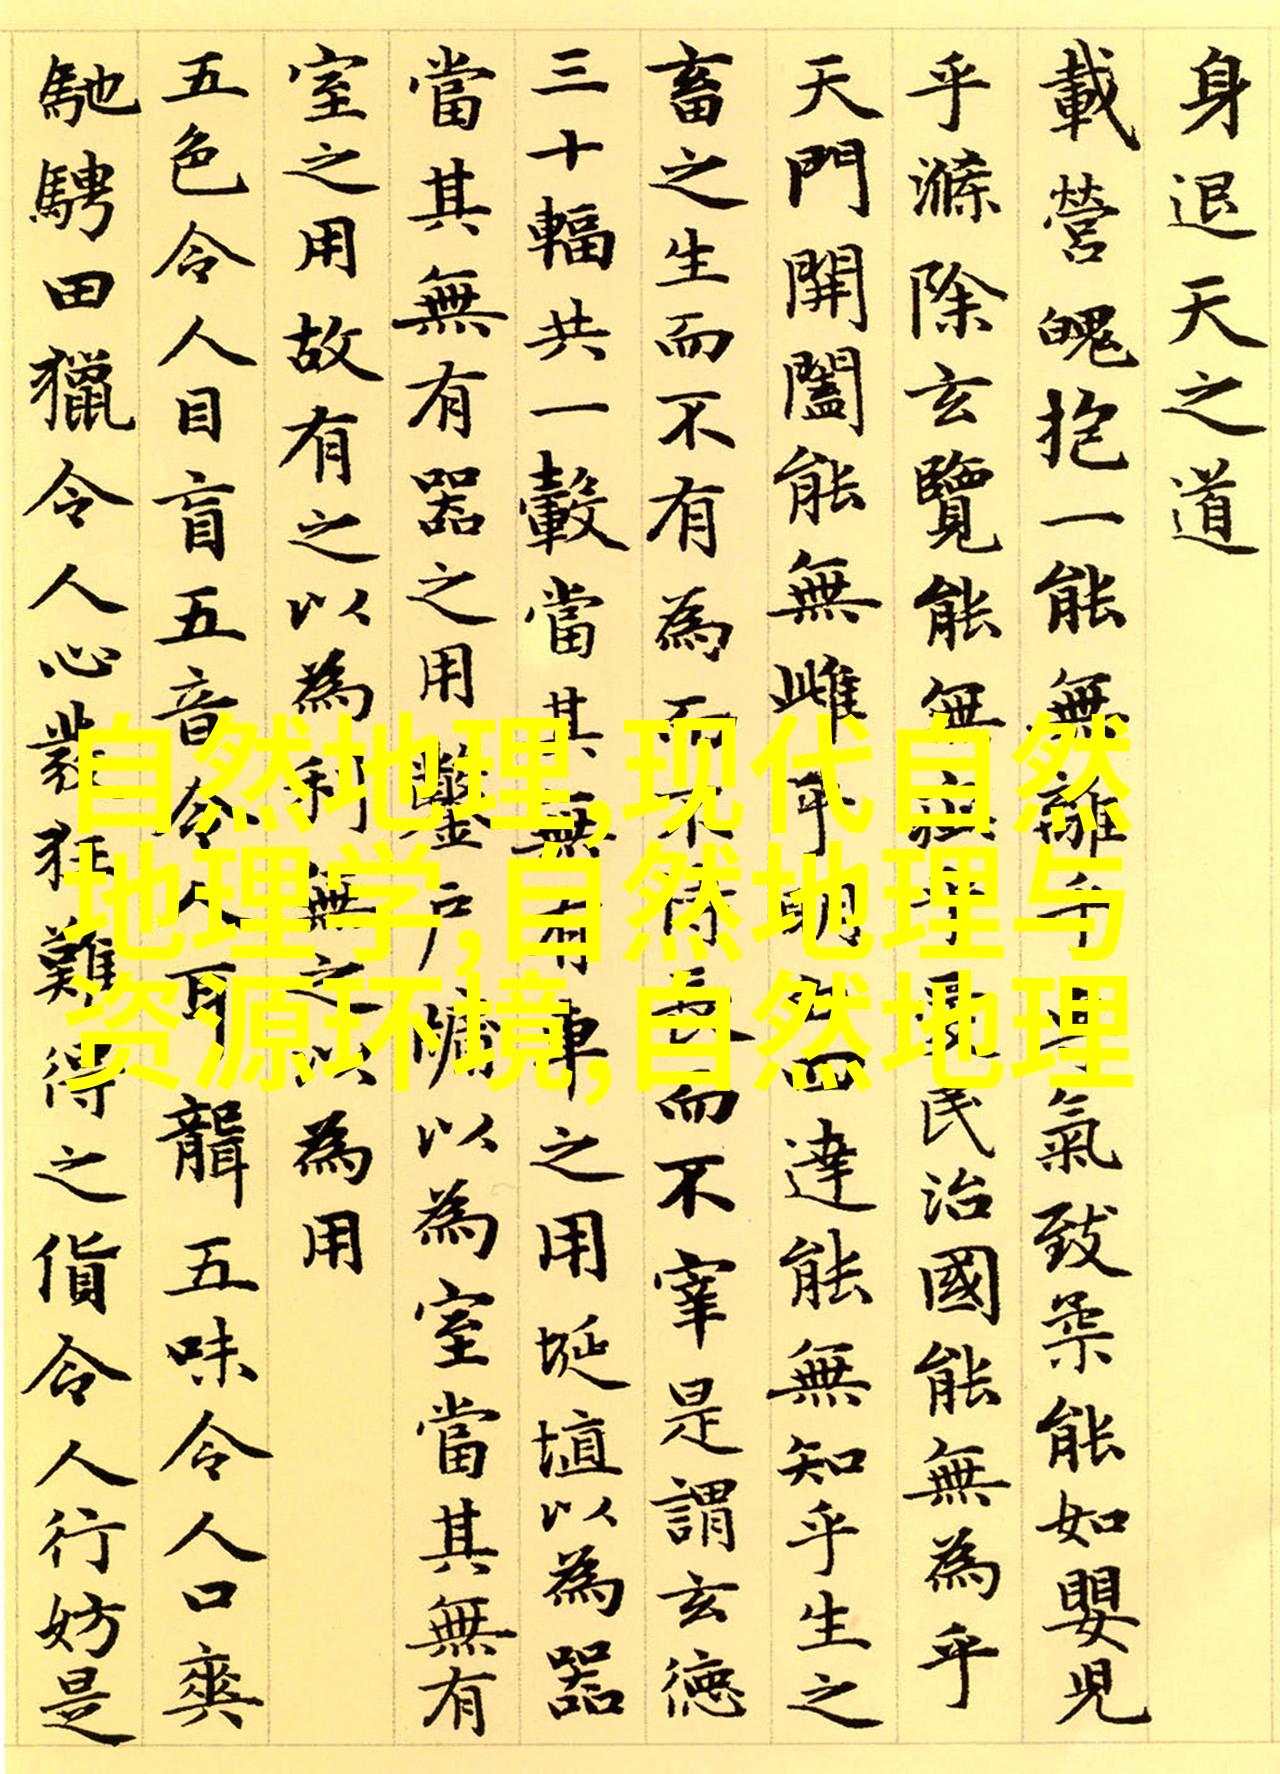 身退天之道
載營魄抱一能無離乎專氣致柔能如嬰兒
乎滌除玄覽能無疵乎愛民治國能無為乎
天門開闔能無雌乎明白四達能無知乎生之
畜之生而不有為而不恃長而不宰是謂玄德
三十輻共一轂當其無有車之用埏埴以為器
當其無有器之用鑿戶牖以為室當其無有
室之用故有之以為利無之以為用
五色令人目盲五音令人耳聾五味令人口爽
馳騁田獵令人心發狂難得之貨令人行妨是
自然地理,现代自然
地理学,自然地理与
资源环境,自然地理